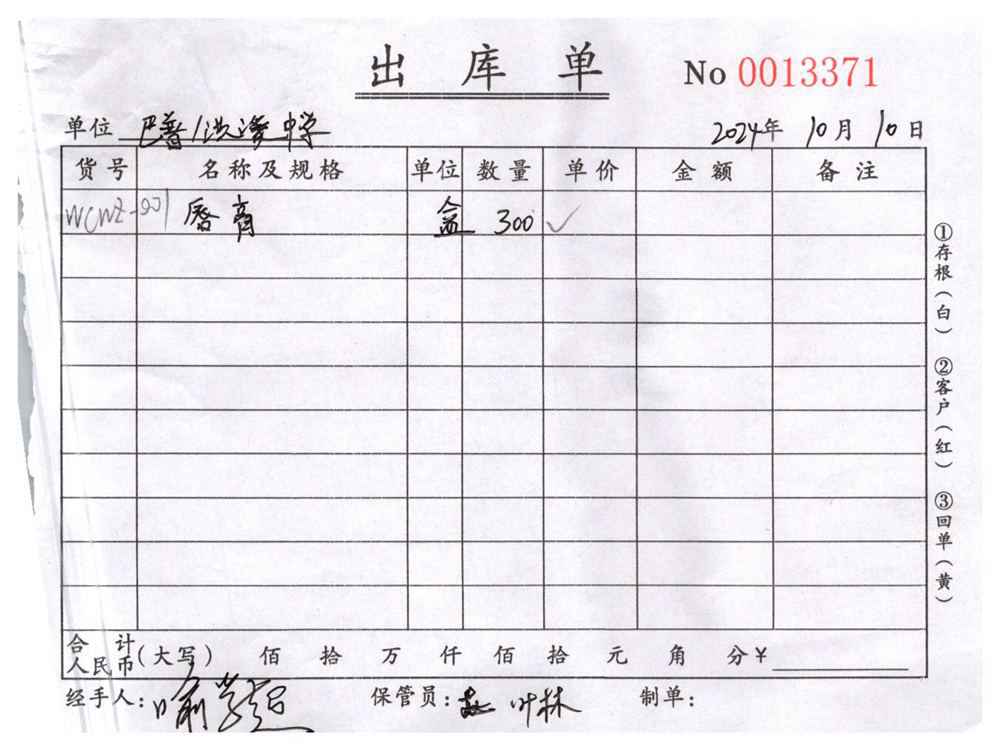 出库单 No 0013371
单位 中学 2024年 10月 10日
货号 名称及规格 单位 数量 单价 金额 备注
唇膏 盒 300 ✓
合计人民币(大写) 佰 拾 万 仟 佰 拾 元 角 分¥
经手人: 保管员: 叶林 制单:
①存根(白) ②客户(红) ③回单(黄)